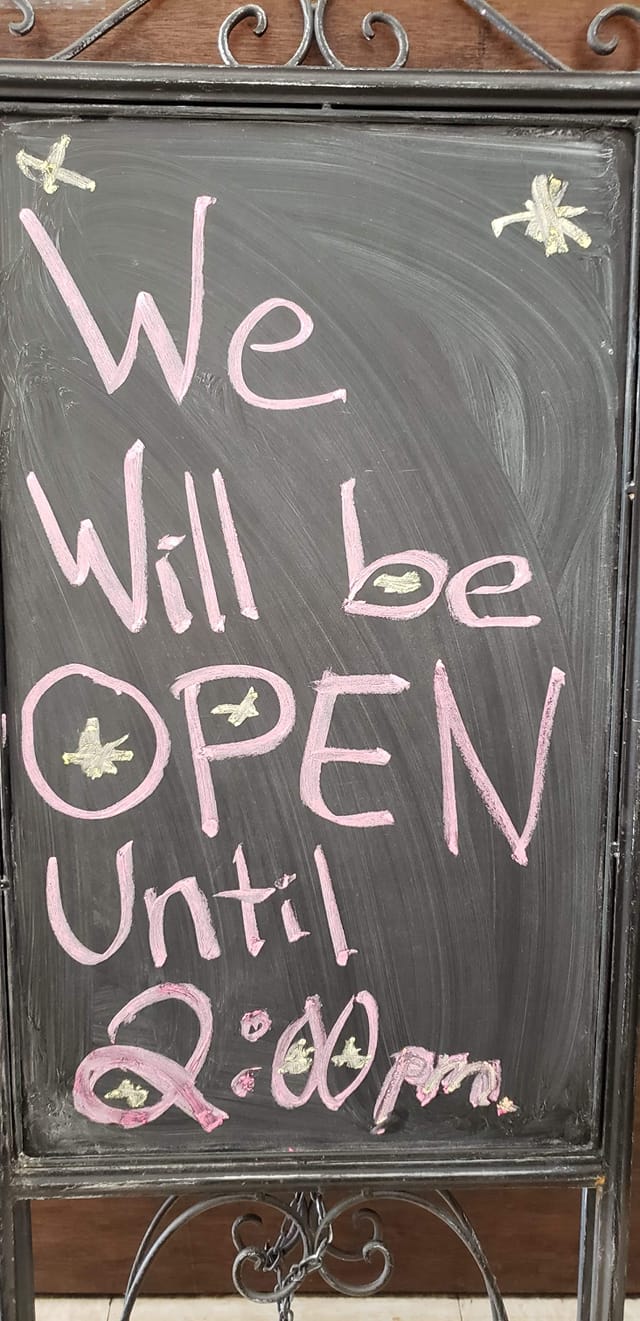 We
Will be
OPEN
Until
2:00 pm.